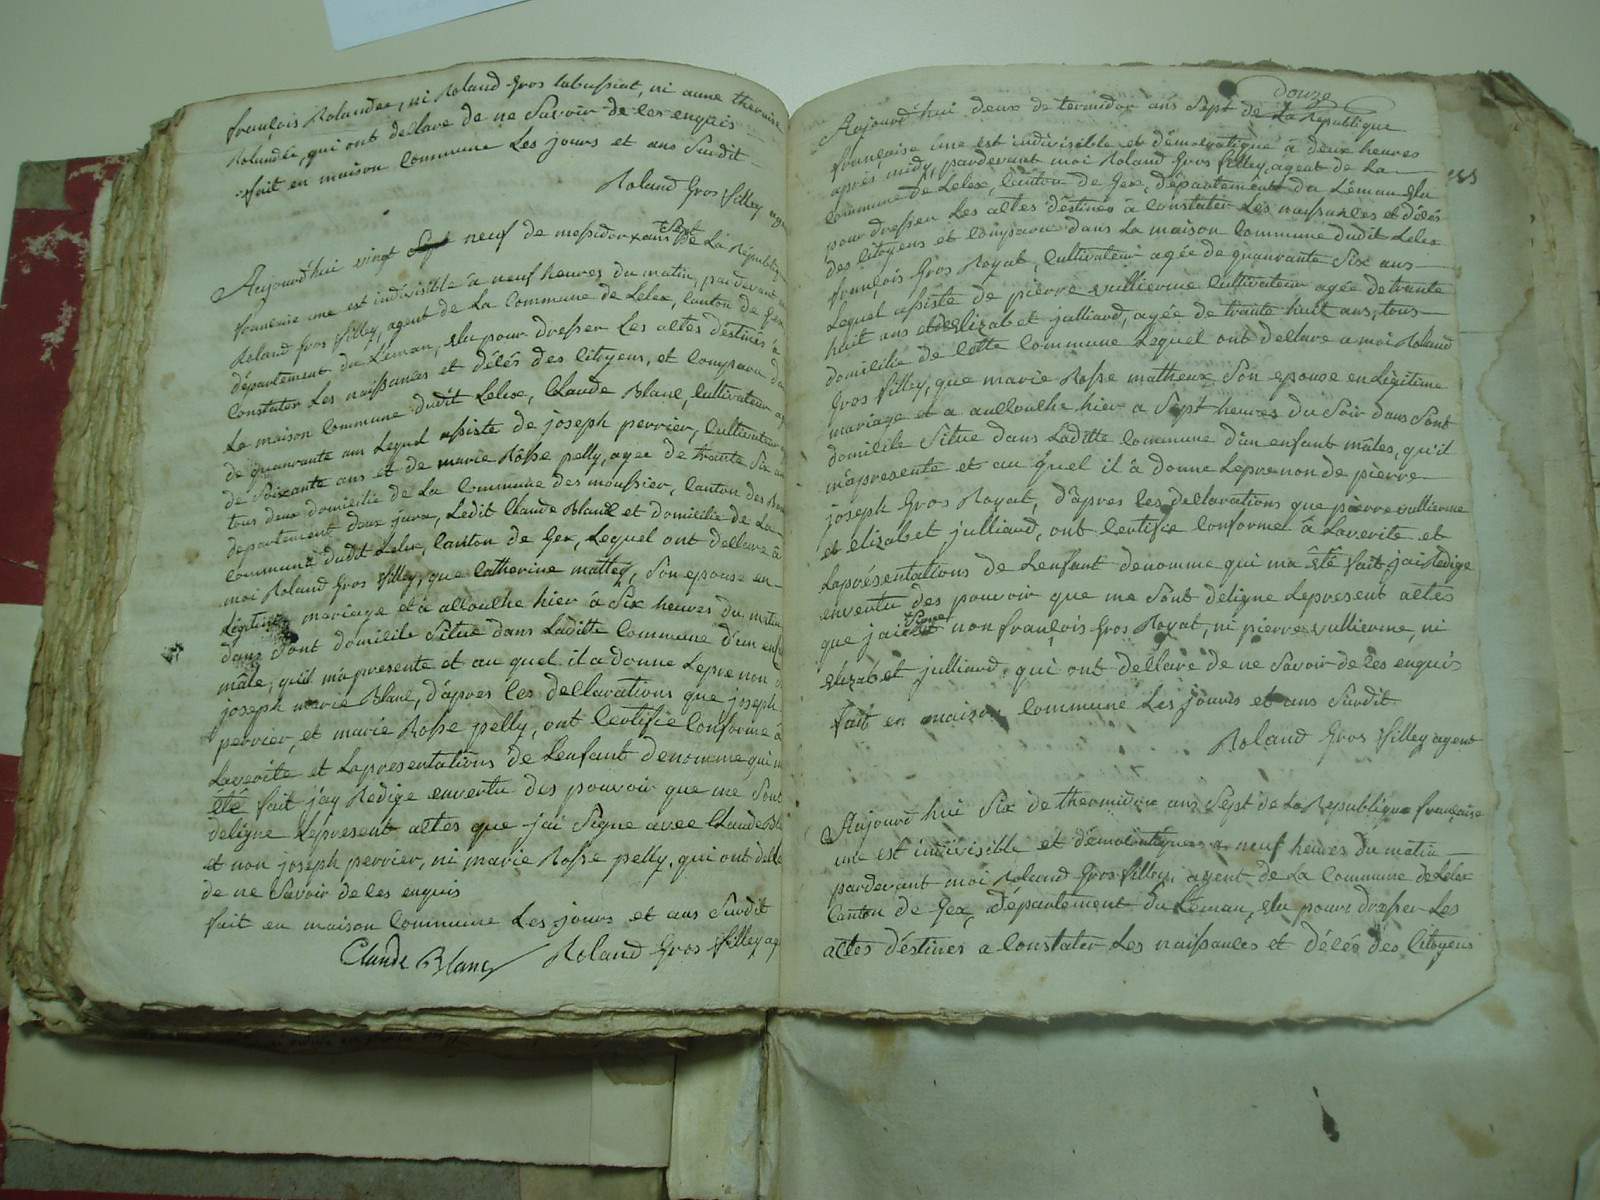 françois Rolandez, ni Roland Gros labussiat, ni anne theraise
Rolandez, qui ont declare de ne Savoir de les enquis
fait en maison Commune Les jours et ans Surdit
Roland Gros filley
Aujourd'hui vingt neuf de messidor ans Sept de La Républiq
francaise une est indivisible à neuf heures du matin, pardevant
Roland Gros filley, agent de La Commune de Lelex, Canton de Gex
département du Léman, elu pour dresser Les altes déstinés à
Constater Les naissances et délés des Citoyens, et Comparu da
La maison Commune dudit Lelex, Claude Blanc, Cultivateur
de quanrante ans Lequel assiste de joseph perrier, Cultivateur
de Soixante ans et de marie Rosse pelly, agee de trante Six an
tous deux domicilie de La Commune des moussier, Canton des
departement daux jura, Ledit Claude Blanc et domicilie de La
Commune dudit Lelex, Canton de Gex, Lequel ont dellare à
moi Roland Gros filley, que Catherine mattey, Son epouse en
Légitime mariage et à allouche hier à Six heures du matin
dans Sont domicile Situé dans Laditte Commune d'un enfa
mâle, qu'il m'apresente et au quel il a donne Leprenon
joseph marie Blanc, d'apres les dellarations que joseph
perrier, et marie Rosse pelly, ont Certifie Conforme à
Laverite et Lapresentations de Lenfant denomme qui m
êtê fait j'ay Redige envertu des pouvoir que me Sont
deligne Lepresent altes que j'ai Signe avec Claude Bl
et non joseph perrier, ni marie Rosse pelly, qui ont della
de ne Savoir de les enquis
fait en maison Commune Les jours et ans Surdit
Claude Blanc Roland Gros filley ag
douze
Aujourd'hui deux de termidor ans Sept de La Republique
française une est indivisible et démocratique à deux heures
après midy, pardevant moi Roland Gros filley, agent de La
Commune de Lelex, Canton de Gex, département du Léman elu
pour dresser Les altes déstinés à constater Les naissances et délés
des Citoyens et Comparu dans La maison Commune dudit Lelex
françois Gros Royat, Cultivateur agée de quanrante Six ans
Lequel assiste de pierre vullierme Cultivateur agée de trante
huit ans et de elizabet julliard, agée de trante huit ans, tous
domicilie de Cette Commune Lequel ont dellare a moi Roland
Gros filley, que marie Rosse matheux Son epouse en Légitime
mariage et a aullouche hier a Sept heures du Soir dans Sont
domicile Situe dans Laditte Commune d'un enfant mâles, qu'il
m'apresente et au quel il à donne Leprenon de pierre
joseph Gros Royat, d'apres les dellarations que pierre vullierme
et elizabet julliard, ont Certifie Conforme à Laverite et
Laprésentations de Lenfant denomme qui ma êtê fait j'ai Redige
envertu des pouvoir que me Sont deligne Lepresent altes
que j'ai Signe non françois Gros Royat, ni pierre vullierme, ni
elizabet julliard, qui ont dellare de ne Savoir de les enquis
fait en maizon Commune Les jours et ans Surdit
Roland Gros filley agent
Aujourd'hui Six de thermidor ans Sept de La Republique française
une est indivisible et démocratique a neuf heures du matin
pardevant moi Roland Gros filley, agent de La Commune de Lelex
Canton de Gex, département du Léman, elu pour dresser Les
altes déstines a Constater Les naissances et délés des Citoyens